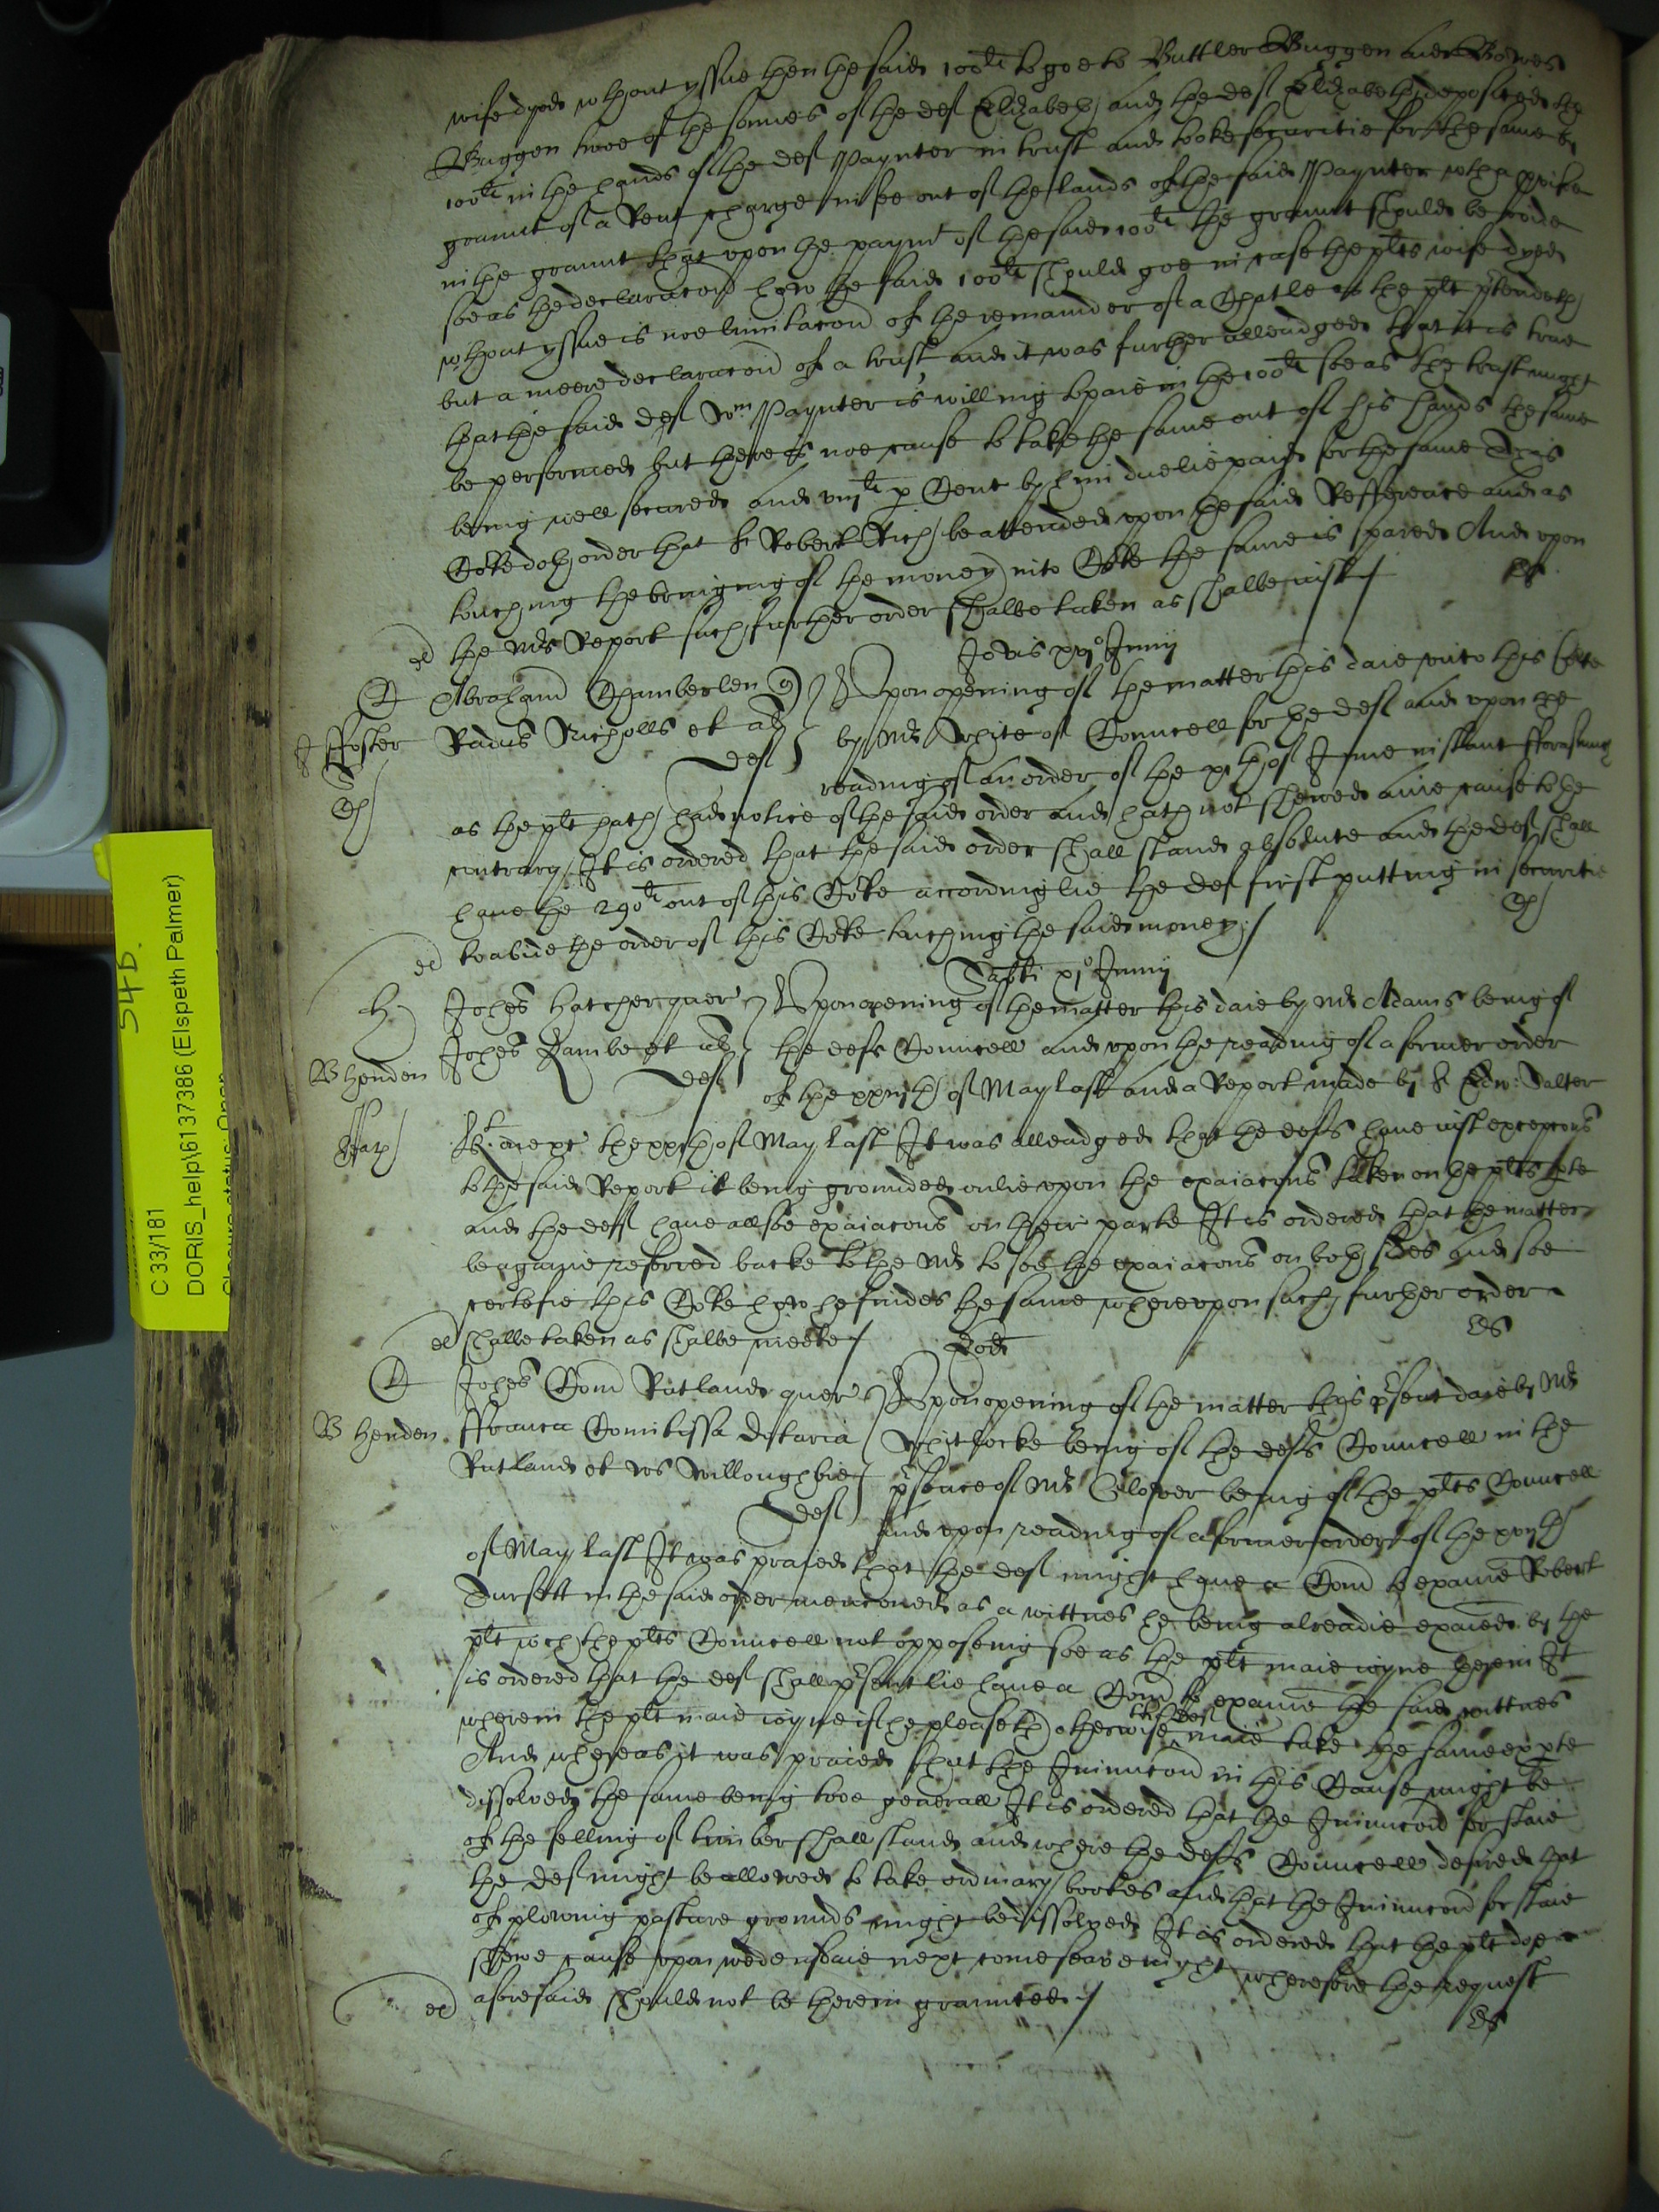 wife dyed without yssue then the said 100li to goe to Buttler Buggen and
Buggen twoe of the sonnes of the def Elizabeth and the def Elizabeth deposited the
100li in the hands of the def Paynter in trust and tooke securitie for the same by
graunt of a Rent charge in fee out of the lands of the said Paynter with a
in the graunt that upon the paymt of the said 100li the graunt should be voide
soe as the declaracon how the said 100li should goe in case the plts wife dyed
without yssue is noe limitacon of the remainder of a Chatle as the plt prtendeth
but a meere declaracon of a trust, and it was further alleadged that it is true
that the said def Wm Paynter is willing to paie in the 100li soe as the trust might
be performed but there is noe cause to take the same out of his hands the same
being well secured and viijli p Cent by him duelie paid for the same This
Corte doth order that Sr Robert Rich be attended upon the said Refference and as
touching the bringing of the money into Corte the same is spared And upon
ex the Mrs Report such further order shalbe taken as shalbe iust
Jovis xvjo Junij
C Abraham Chamberlen q
Radus Nicholls et al
def
Foster
Upon opening of the matter this daie unto this Corte
by Mr White of Councell for the def and upon the
reading of an order of the xth of June instant fforasmuch
as the plt hath had notice of the said order and hath not shewed anie cause to the
contrary, It is ordered that the said order shall stand absolute and the def shall
have the 290li out of this Corte accordinglie the def first putting in securitie
ex to abide the order of this Corte touching the said money
Sabti xjo Junij
H Johes Hatcher quer
Johes Lambe et al
def
B Henden
Upon opening of the matter this daie by Mr Adams being of
the defs Councell and upon the reading of a former order
of the of May last and a Report made by Sr Edw: Salter
Kt the of May last It was alleadged that the defs have iust excepcons
to the said Report it being grounded onlie upon the exaiacons taken on the plts pte
and the defs have allsoe exaiacons on their parte It is ordered that the matter
be againe referred backe to the Mr to see the exaiacons on both sides and soe
certefie this Corte how he findes the same whereupon such further order
ex shalbe taken as shalbe meete
Eod
C Johes Com Rutland quer
B Henden ffranca Comitissa dotaria
Rutland et Willoughbie
def
Upon opening of the matter this prsent daie by Mr
Whitlocke being of the defs Councell in the
prsence of Mr being of the plts Councell
and upon reading of a former order of the
of May last It was praied that the def might have a Com to exaine Robert
in the said order menconed as a wittnes he being alreadie exaied by the
plt wch the plts Councell not opposeing soe as the plt maie ioyne therein It
is ordered that the def shall prsentlie have a Com to exaine the said wittnes
wherein the plt maie ioyne if he pleaseth otherwise the def maie take the same exparte
And whereas it was praied that the Iniuncon in this Cause might be
dissolved the same being too generall It is ordered that the Iniuncon for staie
of the felling of timber shall stand and where the defs Councell desired that
the def might be allowed to take ordinary bootes and that the Iniuncon for staie
of plowing pasture grounds might be dissolved It is ordered that the plt doe
shewe cause upon wedensdaie next come seavenight wherefore the request
ex aforesaid should not be therein graunted
54D.
C 33/181
DORIS_help\6137386 (Elspeth Palmer)